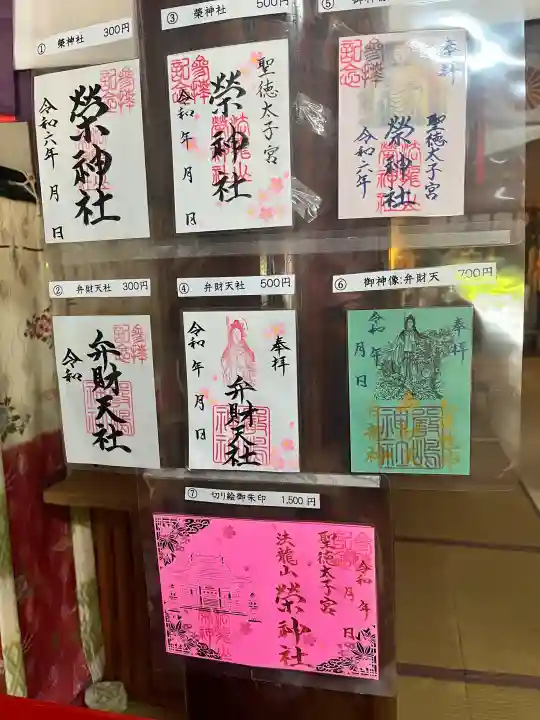 ① 榮神社 300円
参拝
記念
榮神社
令和六年 月 日
③ 榮神社 500円
参拝
記念
聖徳太子宮
榮神社
令和六年 月 日
⑤
奉拝
参拝
記念
聖徳太子宮
榮神社
令和六年 月 日
② 弁財天社 300円
参拝
記念
弁財天社
令和
④ 弁財天社 500円
奉拝
弁財天社
令和 年 月 日
⑥ 御神像:弁財天 700円
奉拝
令和 年 月 日
厳嶋
神社
⑦ 切り絵御朱印 1,500円
令和 年 月 日
聖徳太子宮
法龍山 榮神社